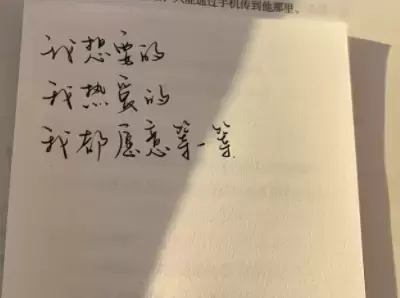 只能通过手机传到他那里。
我想要的
我热爱的
我都愿意等一等